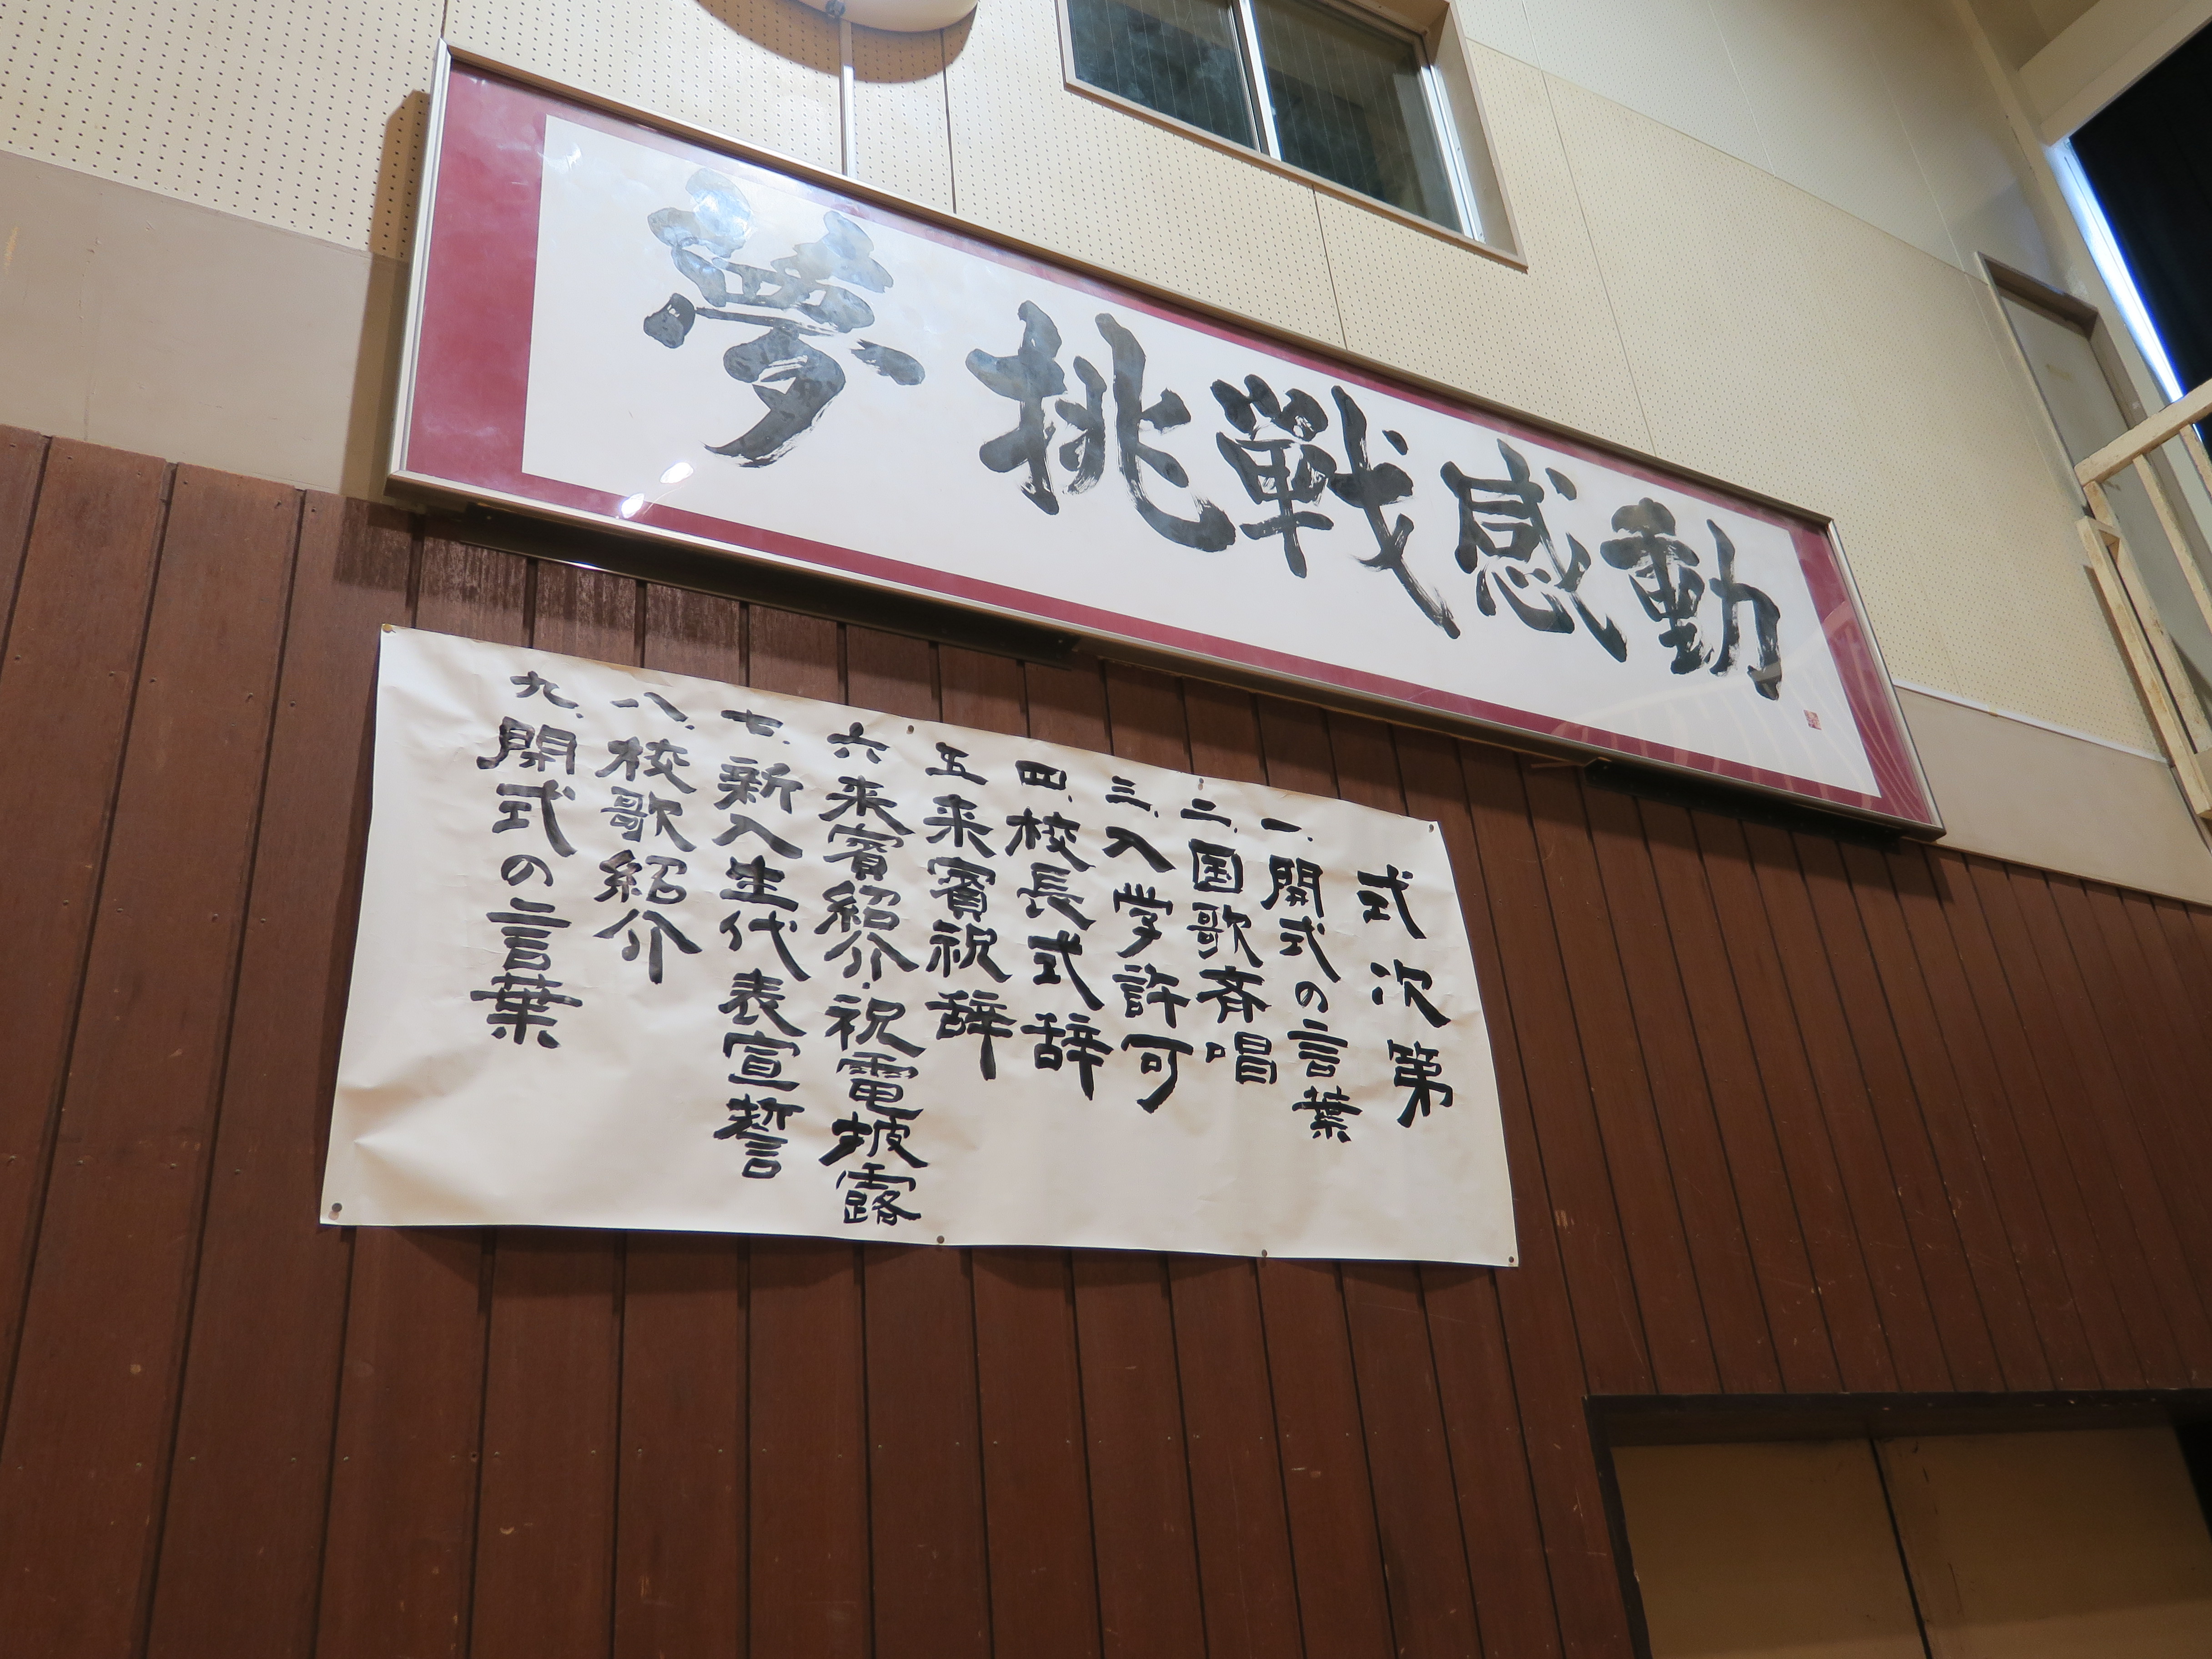 夢 挑戦 感動
式次第
一、開式の言葉
二、国歌斉唱
三、入学許可
四、校長式辞
五、来賓祝辞
六、来賓紹介・祝電披露
七、新入生代表宣誓
八、校歌紹介
九、閉式の言葉